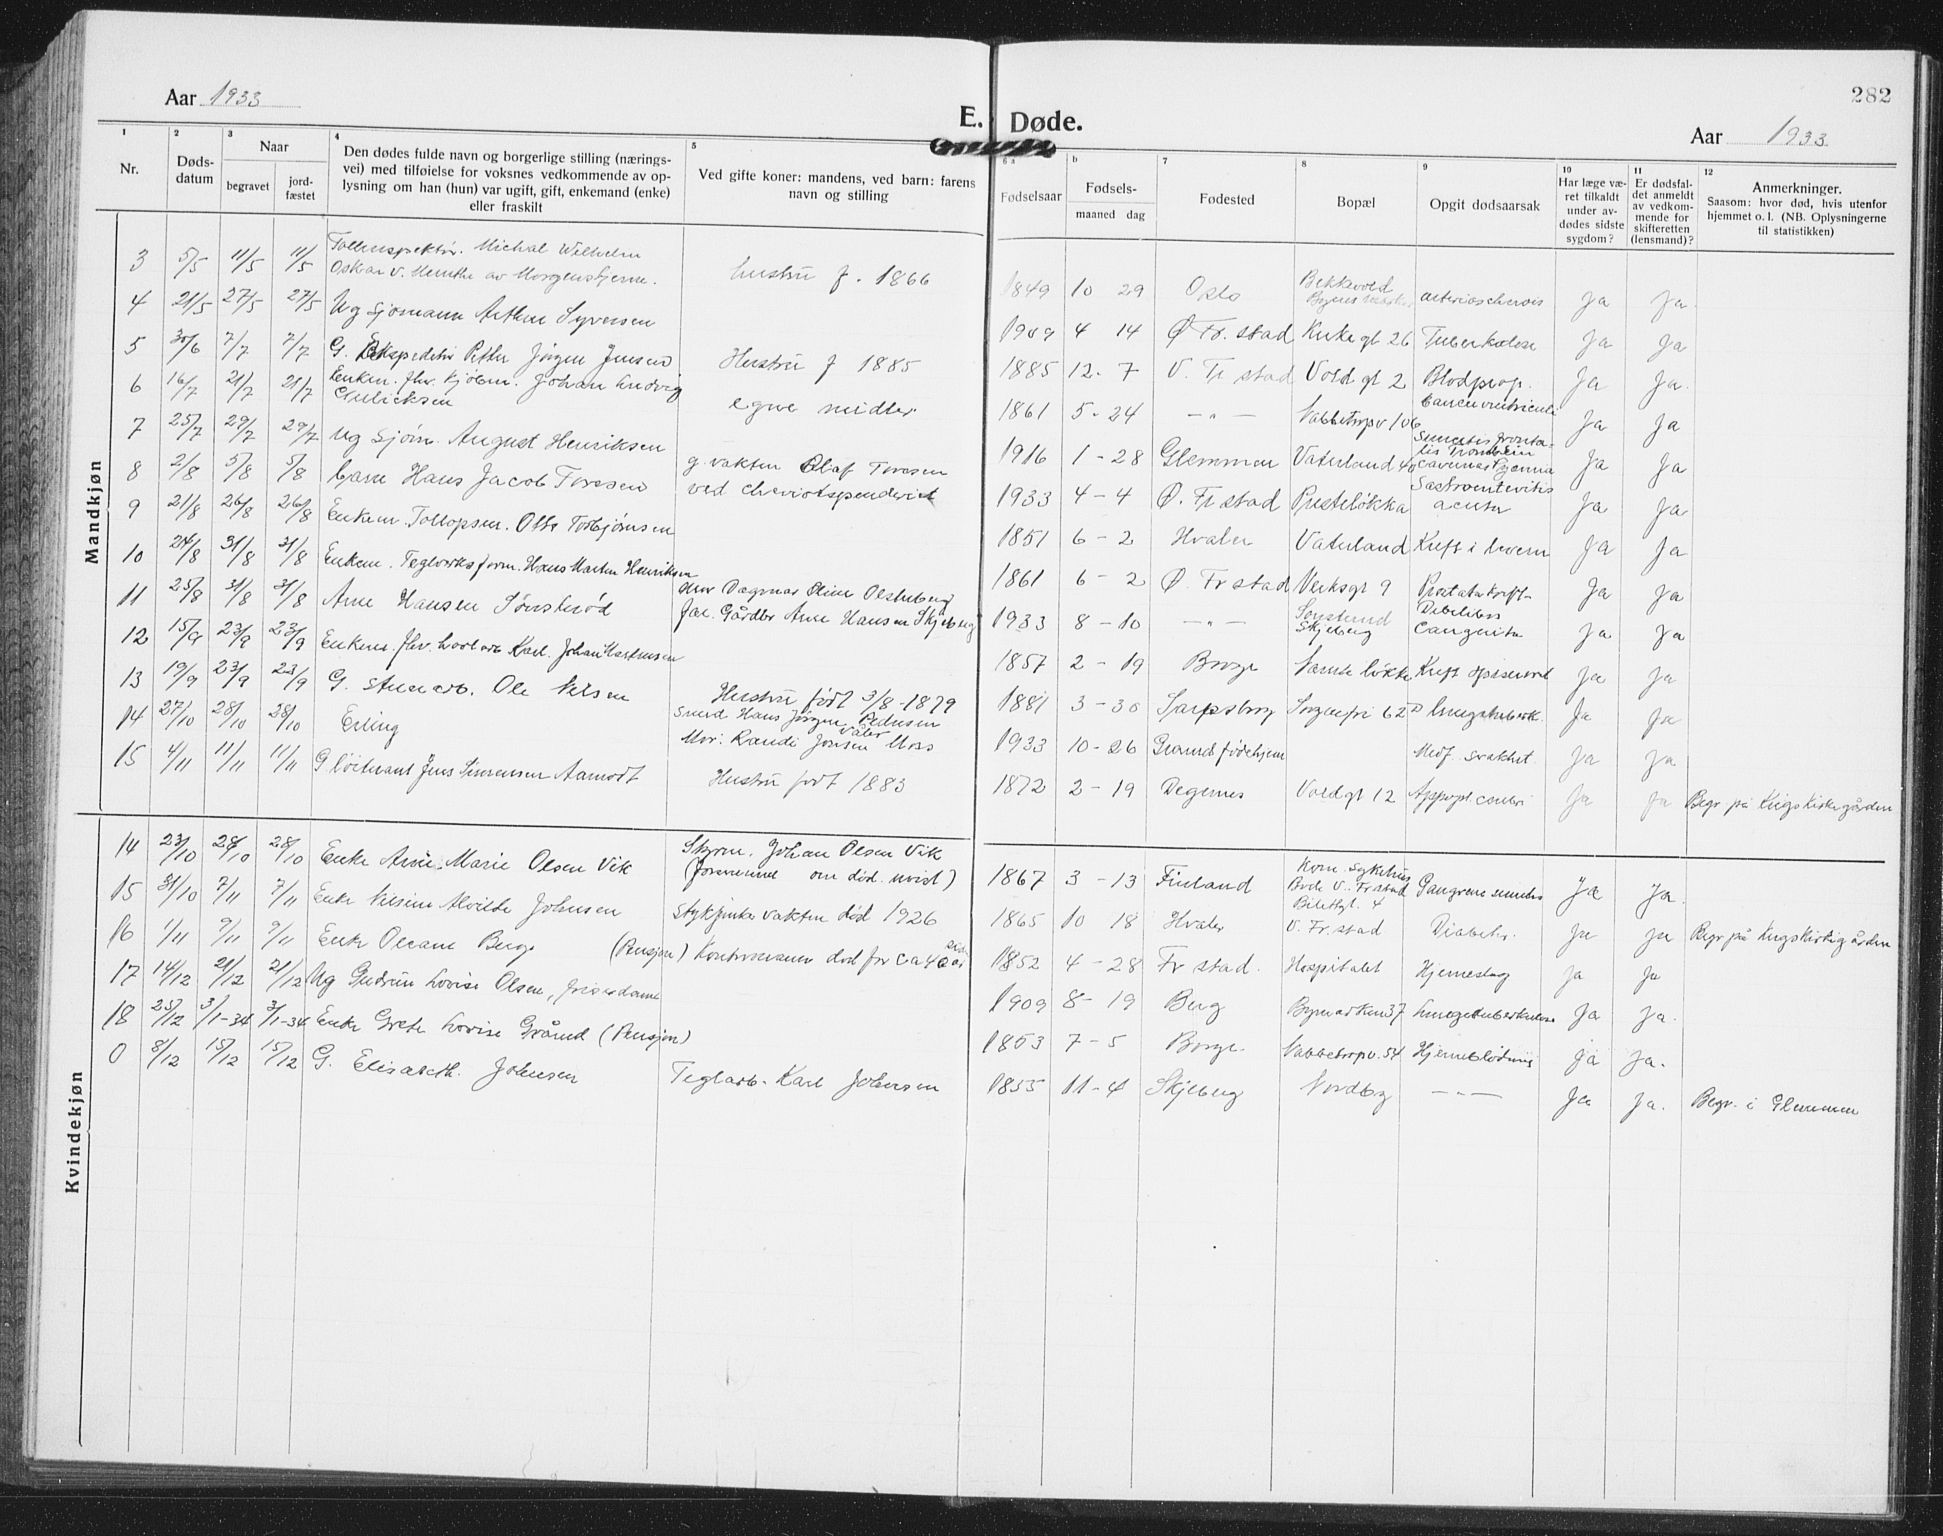 Aar 1933
E. Døde.
282
Aar 1933
1 Nr.
2 Døds-
datum
3 Naar
begravet
jord-
fæstet
4 Den dødes fulde navn og borgerlige stilling (nærings-
vei) med tilføielse for voksnes vedkommende av op-
lysning om han (hun) var ugift, gift, enkemand (enke)
eller fraskilt
5 Ved gifte koner: mandens, ved barn: farens
navn og stilling
6 a Fødselsaar
b Fødsels-
maaned dag
7 Fødested
8 Bopæl
9 Opgit dødsaarsak
10 Har læge væ-
ret tilkaldt
under av-
dødes sidste
sygdom?
11 Er dødsfal-
det anmeldt
av vedkom-
mende for
skifteretten
(lensmand)?
12 Anmerkninger.
Saasom: hvor død, hvis utenfor
hjemmet o. l. (NB. Oplysningerne
til statistikken)
Mandkjøn
3 5/5 11/5 11/5 Tollinspektør. Michal Wilhelm
Oskar v. Munthe av Morgenstjerne. hustru f. 1866 1849 10 29 Oslo Bekkevold arteriosclerosis Ja Ja.
4 21/5 27/5 27/5 Ug Sjømann Arthur Syversen 1909 4 14 Ø Fr. stad Kirkegt 26 Tuberkolose Ja Ja
5 30/6 7/7 7/7 G. Ekspeditør Petter Jørgen Jensen Hustru f 1885 1885 12-7 V. Fr stad Voldgt 2 Blodprop. Ja Ja.
6 16/7 21/7 21/7 Enkem. fhv. kjøbm. Johan Ludvig
Gulicksen egne midler 1861 5-24 -"- Nabbetorpv 106 Cancer ventriculi Ja Ja
7 25/7 29/7 29/7 Ug sjøm. August Henriksen 1916 1-28 Glemmen Vaterland Ja Ja
8 2/8 5/8 5/8 barn Hans Jacob Toresen g. vaktm Olaf Toresen
ved cheviotspinderiet 1933 4-4 Ø. Fr stad Presteløkka Gastroenteritis
acuta Ja Ja
9 21/8 26/8 26/8 Enkem. Tollopsm. Otto Torbjørnsen 1851 6-2 Hvaler Vaterland Kreft i leveren Ja Ja
10 24/8 31/8 31/8 Enkem. Teglverksform. Hans Martin Henriksen 1861 6-2 Ø. Fr stad Verksgt 9 Prostatakreft Ja Ja
11 25/8 31/8 31/8 Arne Hansen Mor Dagmar Oline
Far. Gårdbr Arne Hansen Skjeberg 1933 8-10 -"- Skjeberg Debilitas
Congenita Ja Ja
12 15/9 23/9 23/9 Enkem. fhv. Karl Johan Martinsen 1857 2-19 Borge Kreft i spiserøret Ja Ja
13 19/9 23/9 23/9 G. Ole Nilsen Hustru født 3/8-1879 1881 3-30 Sarpsborg Sorgenfri 62 Lungetuberk. Ja Ja
14 27/10 28/10 28/10 Erling Smed Hans Jørgen Pedersen Våler
Mor: Randi Jonsen Moss 1933 10-26 Grand fødehjem Medf. svakhet. Ja Ja
15 4/11 11/11 11/11 G løitnant Jens Simensen Aamodt Hustru født 1883 1872 2-19 Degernes Voldgt 12 Ja Ja Begr på Krigskirkegården
Kvindekjøn
14 23/10 28/10 28/10 Enke Anne Marie Olsen Vik Styrm. Johan Olsen Vik
(forsvunnet om død uvist) 1867 3-13 Finland Kom. sykehus
V. Fr stad Gangrene Ja Ja.
15 31/10 7/11 7/11 Enke Nilsine Alvilde Johnsen vaktm død 1926 1865 10 18 Hvaler V. Fr. stad Diabetes. Ja Ja Begr på Krigskirkegården
16 1/11 9/11 9/11 Enke Oleane Berg. (Pensjon) død for ca 40 år 1852 4-28 Fr stad. Hospitalet Hjerneslag Ja Ja
17 14/12 21/12 21/12 Ug Gudrun Lovise Olsen, frisørdame 1909 8-19 Berg Bymarken 37 Lungetuberkulose Ja Ja.
18 25/12 3/1-34 3/1-34 Enke Grete Lovise Gråned (Pensjon) 1853 7-5 Borge. Nabbetorpv. 54 Hjerneblødning Ja Ja.
0 8/12 15/12 15/12 G. Elisabeth Johnsen Teglarb. Karl Johnsen 1855 11-4 Skjeberg Nordby -"- Ja Ja. Begr. i Glemmen